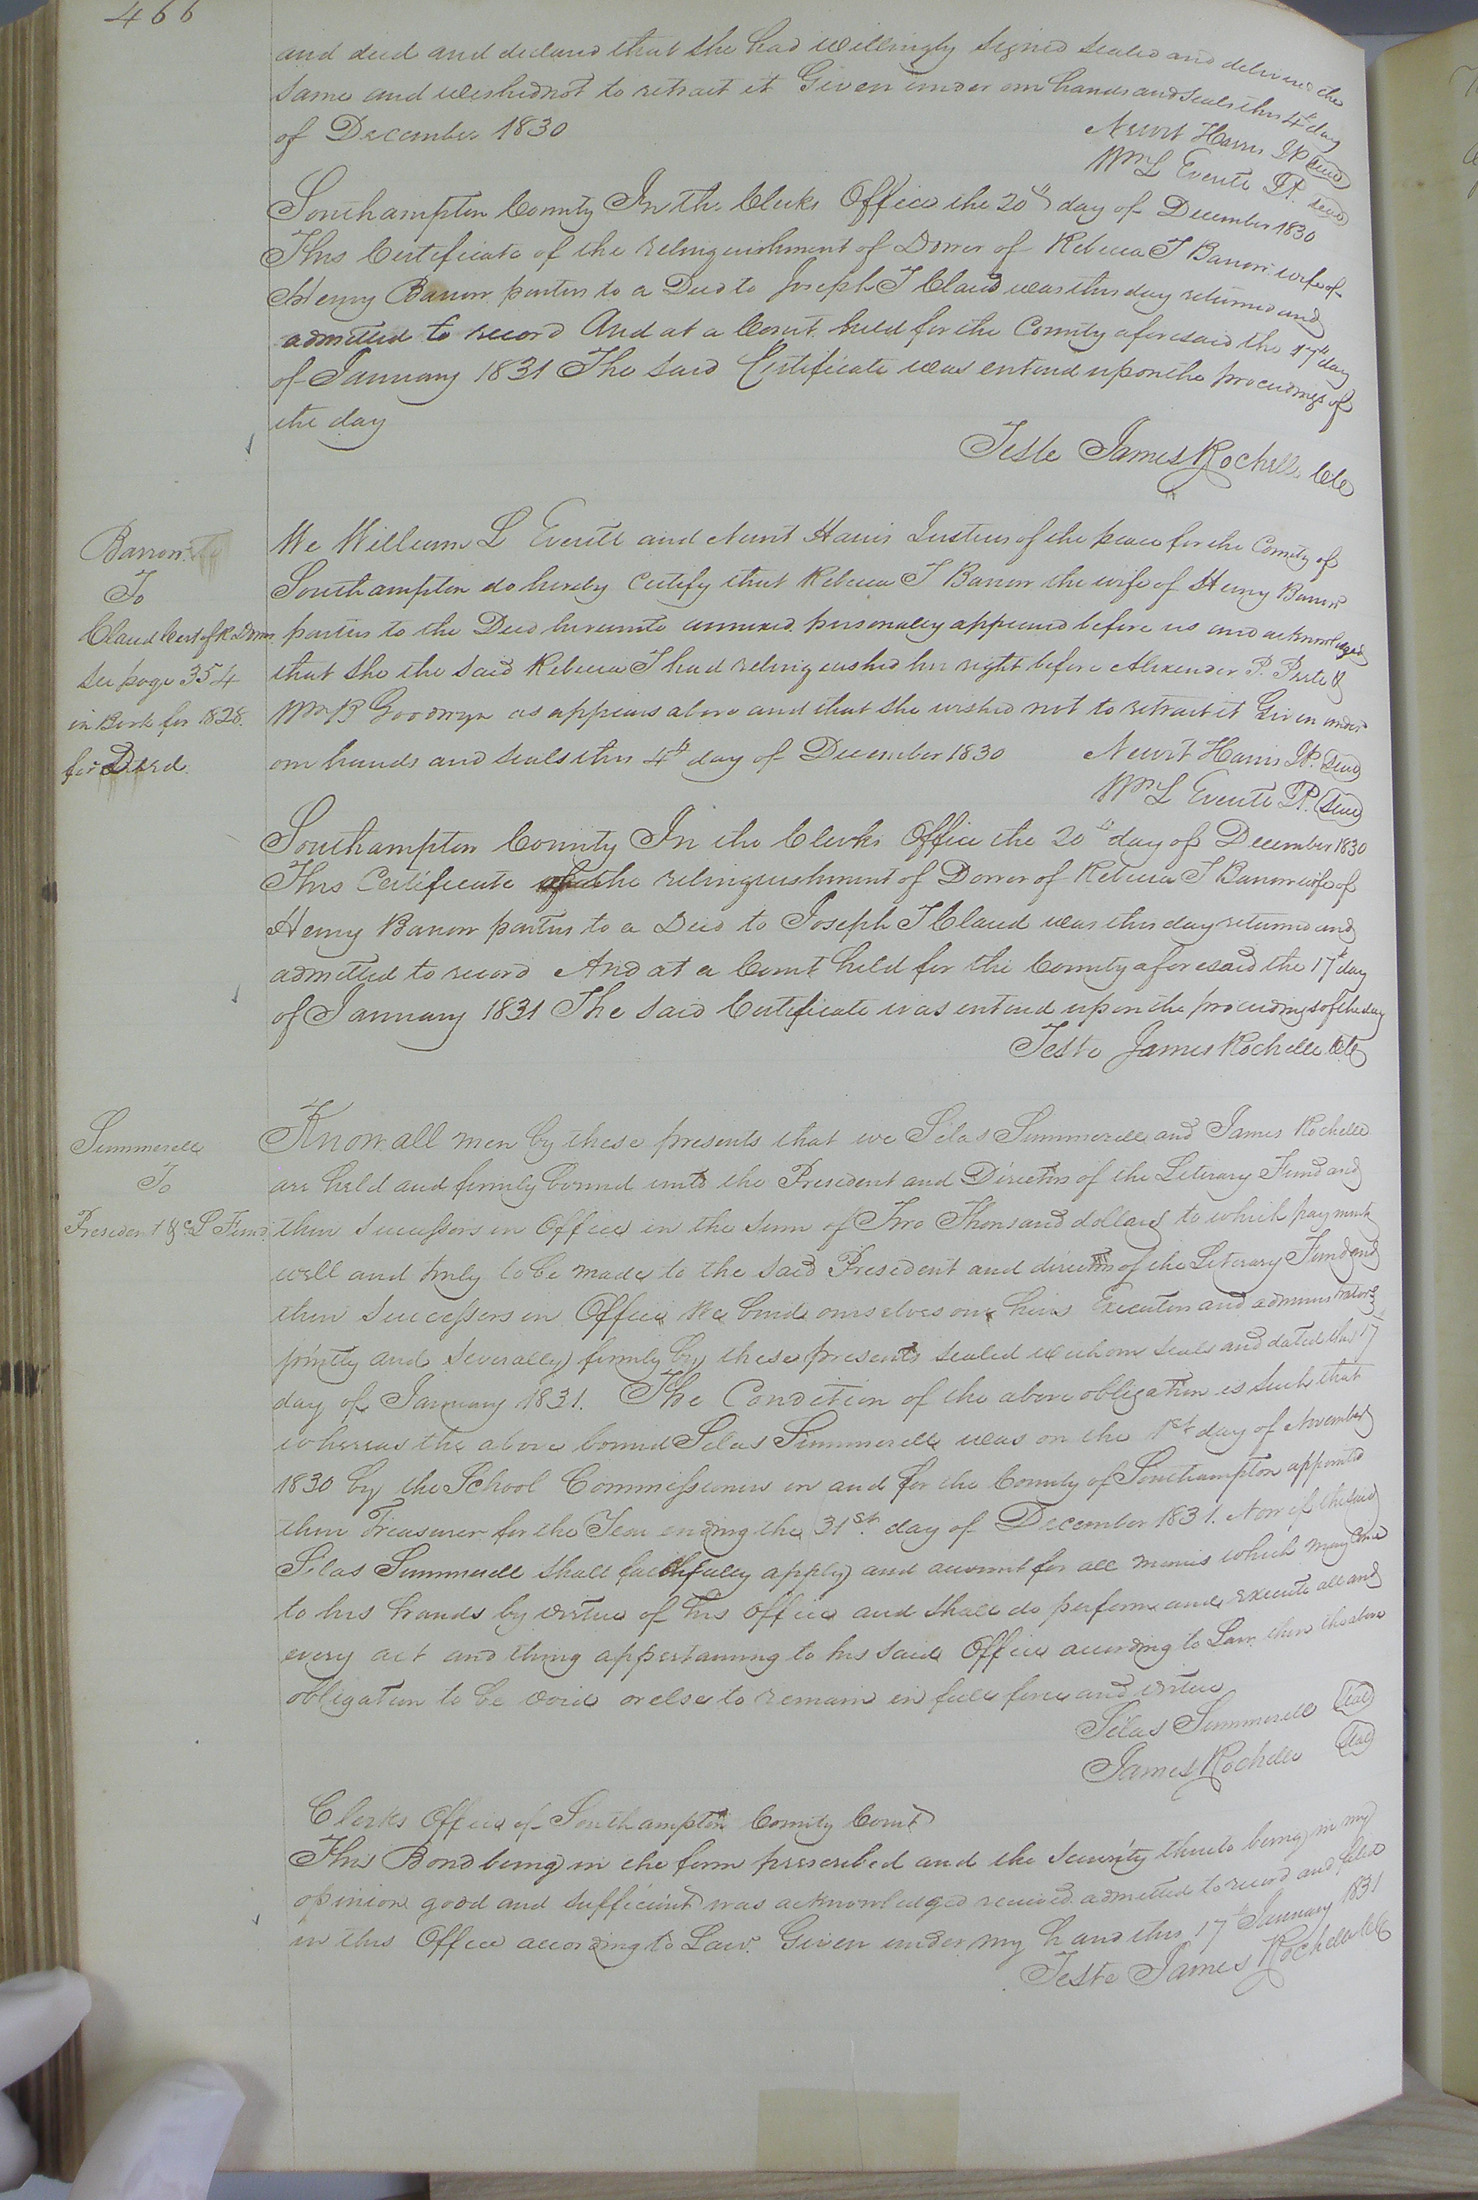 466
and deed and declared that she had willingly signed sealed and delivered the
same and wished not to retract it Given under our hands and seals this 4th day
of December 1830
Newit Harris JP Seal
Wm L Everitt JP. Seal
Southampton County In the Clerks Office the 20th day of December 1830
This Certificate of the relinquishment of Dower of Rebecca T Barrow wife of
Henry Barrow parties to a Deed to Joseph T Claud was this day returned and
admitted to record And at a Court held for the County aforesaid the 17th day
of January 1831 The said Certificate was entered upon the proceedings of
the day
Teste James Rochelle Clk
Barrow
To
Claud Cert of R. Dower
See page 354
in Book for 1828.
for Deed.
We William L Everitt and Newit Harris Justices of the peace for the County of
Southampton do hereby certify that Rebecca T Barrow the wife of Henry Barrow
parties to the Deed hereunto annexed personally appeared before us and acknowledged
that she the said Rebecca T had relinquished her right before Alexander P. Peete &
Wm B Goodwyn as appears above and that she wished not to retract it Given under
our hands and seals this 4th day of December 1830
Newit Harris JP. Seal
Wm L Everitt JP. Seal
Southampton County In the Clerks Office the 20th day of December 1830
This Certificate of the relinquishment of Dower of Rebecca T Barrow wife of
Henry Barrow parties to a Deed to Joseph T Claud was this day returned and
admitted to record And at a Court held for the County aforesaid the 17th day
of January 1831 The said Certificate was entered upon the proceedings of the day
Teste James Rochelle Clk
Summerell
To
President &c L Fund
Know all men by these presents that we Silas Summerell and James Rochelle
are held and firmly bound unto the President and Directors of the Literary Fund and
their successors in Office in the sum of Two Thousand dollars to which payment
well and truly to be made to the said President and directors of the Literary Fund and
their successors in Office We bind ourselves our heirs Executors and administrators
jointly and severally firmly by these presents sealed with our seals and dated this 17
day of January 1831. The Condition of the above obligation is such that
whereas the above bound Silas Summerell was on the 1st day of November
1830 by the School Commissioners in and for the County of Southampton appointed
their Treasurer for the Year ending the 31st. day of December 1831. Now if the said
Silas Summerell shall faithfully apply and account for all monies which may come
to his hands by virtue of his office and shall do perform and execute all and
every act and thing appertaining to his said Office according to Law then the above
obligation to be void or else to remain in full force and virtue
Silas Summerell Seal
James Rochelle Seal
Clerks Office of Southampton County Court
This Bond being in the form prescribed and the security thereto being in my
opinion good and sufficient was acknowledged received admitted to record and filed
in this Office according to Law. Given under my hand this 17th January 1831
Teste James Rochelle Clk